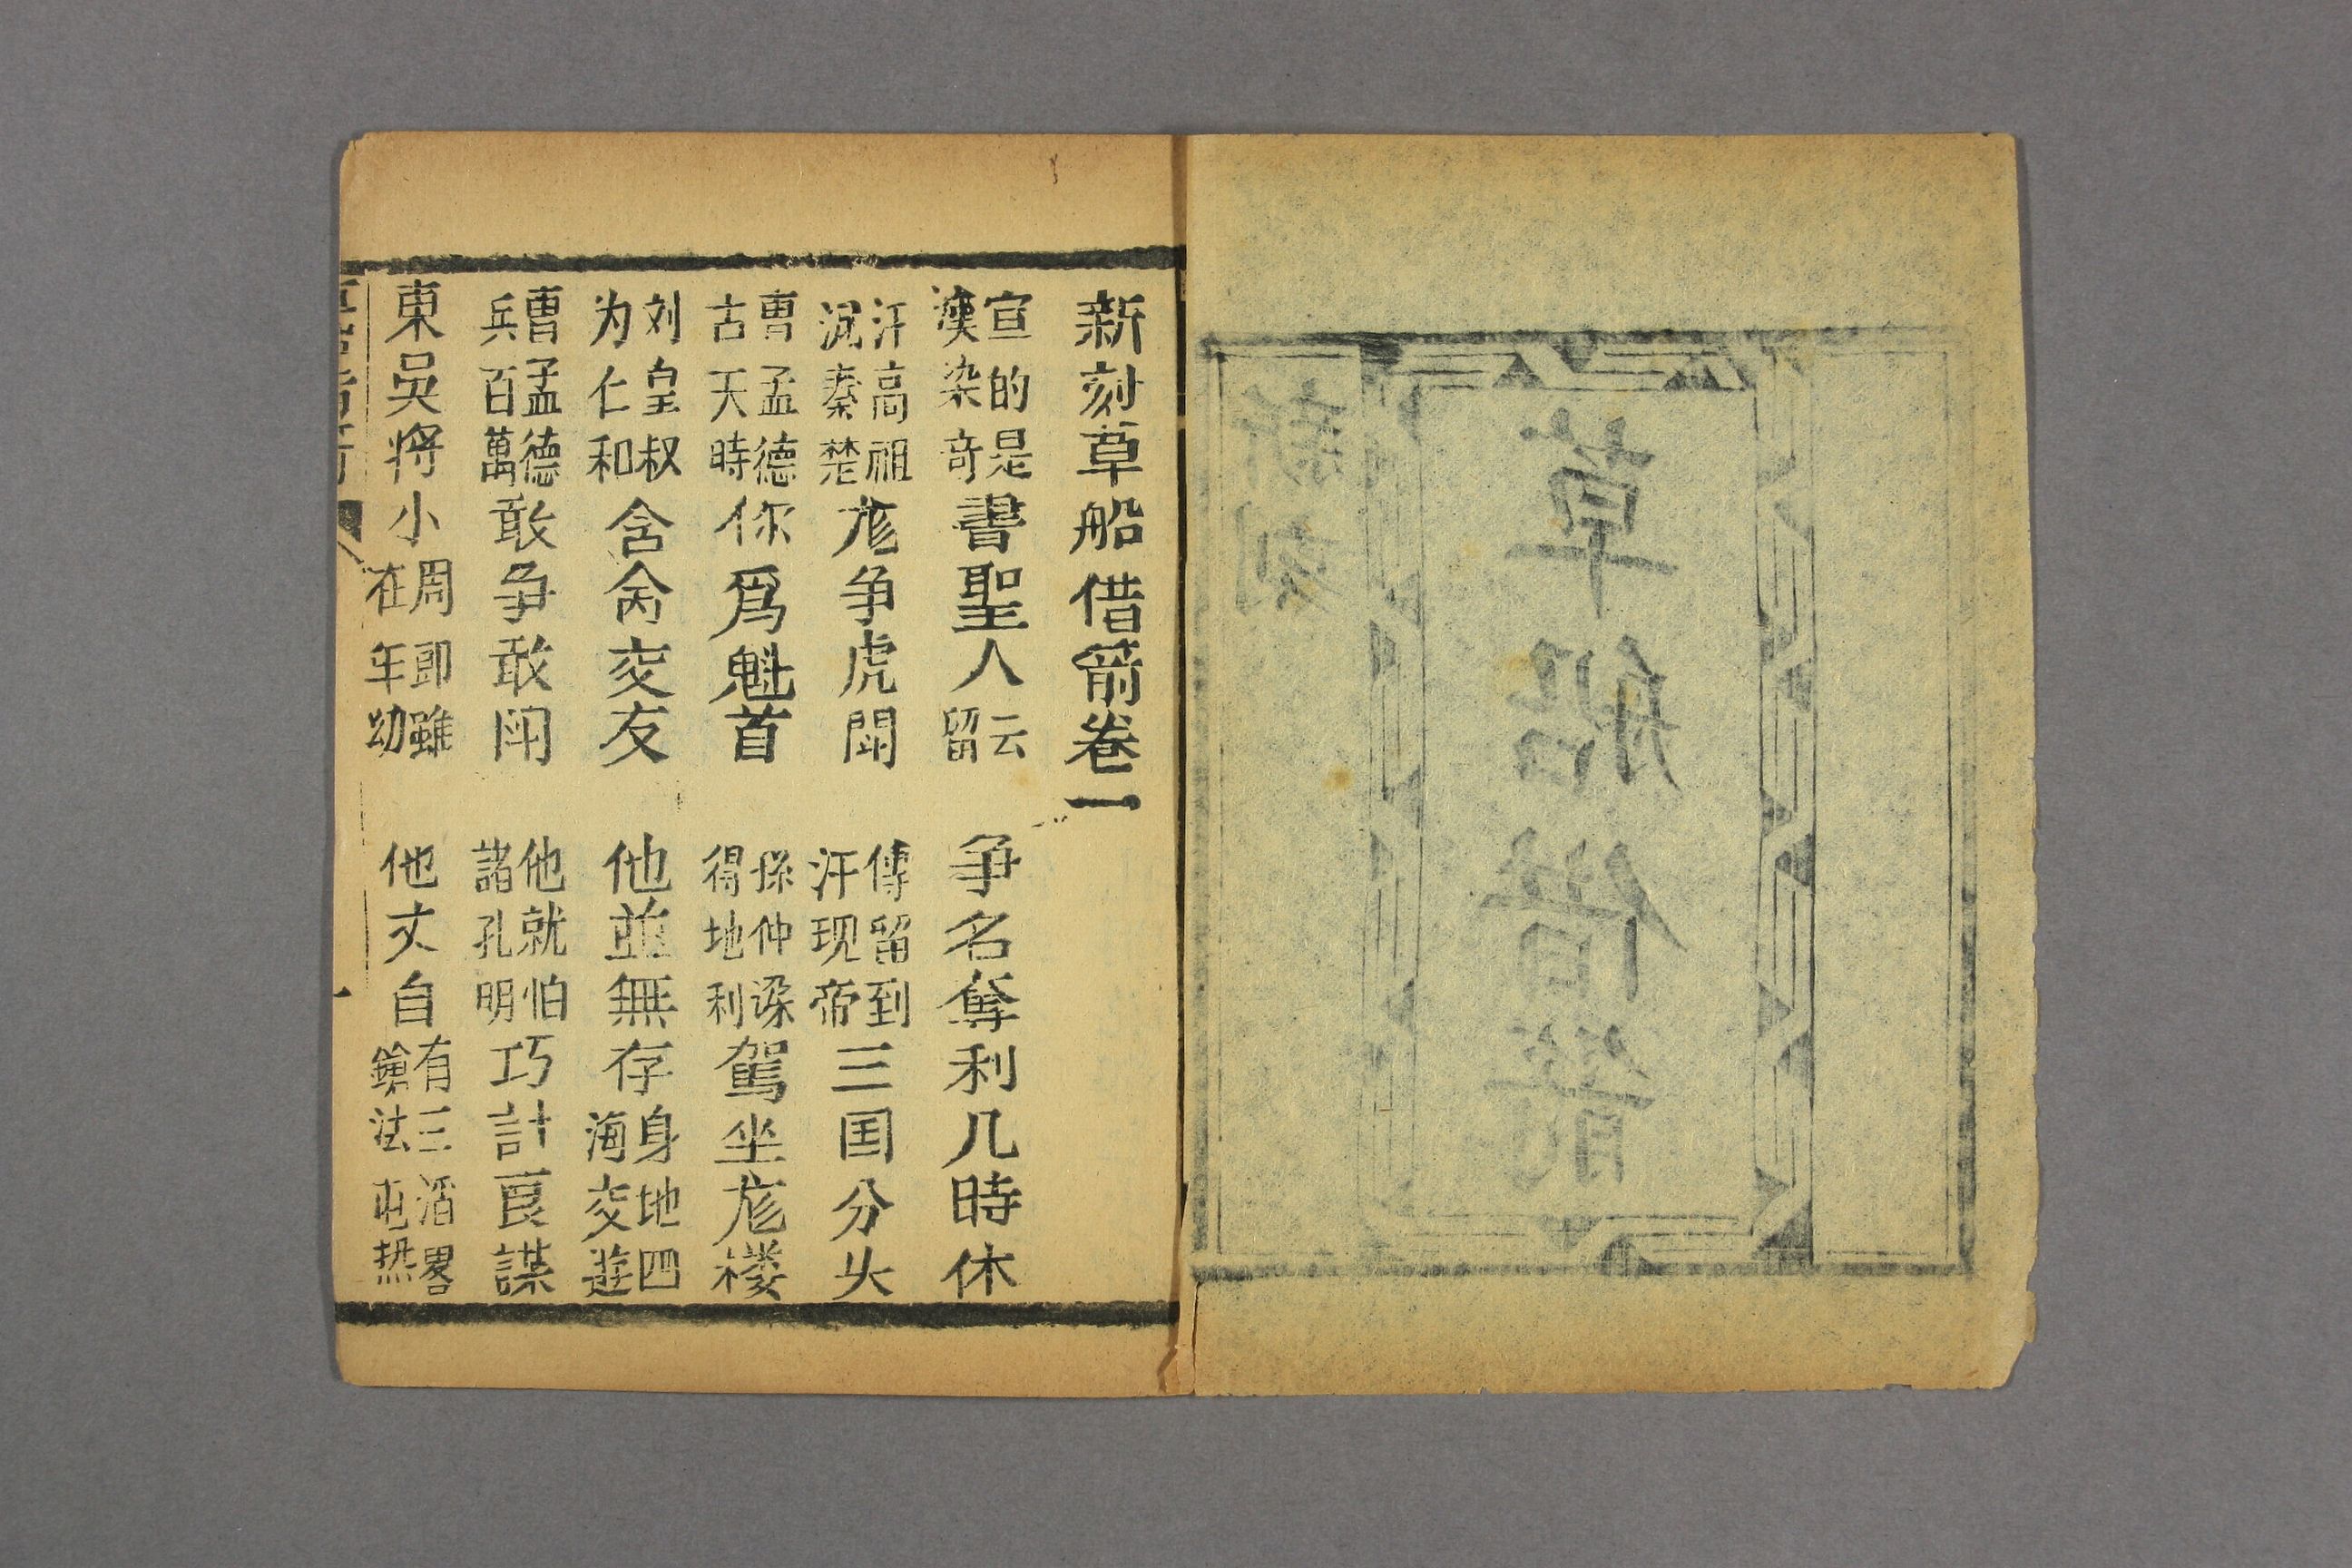 新刻
草船借箭
新刻草船借箭卷一
宣的是漢染奇書聖人云留 争名奪利几時休
汗高祖滅秦楚尨争虎閗 傳留到汗现帝三国分头
曹孟德古天時你爲魁首 孫仲谋得地利駕坐尨楼
刘皇叔为仁和舍交友 他並無存身地四海交遊
曹孟德兵百萬敢争敢闬 他就怕諸孔明巧計良謀
東吳將小周郎雖在年幼 他丈自有三滔畧鎗法